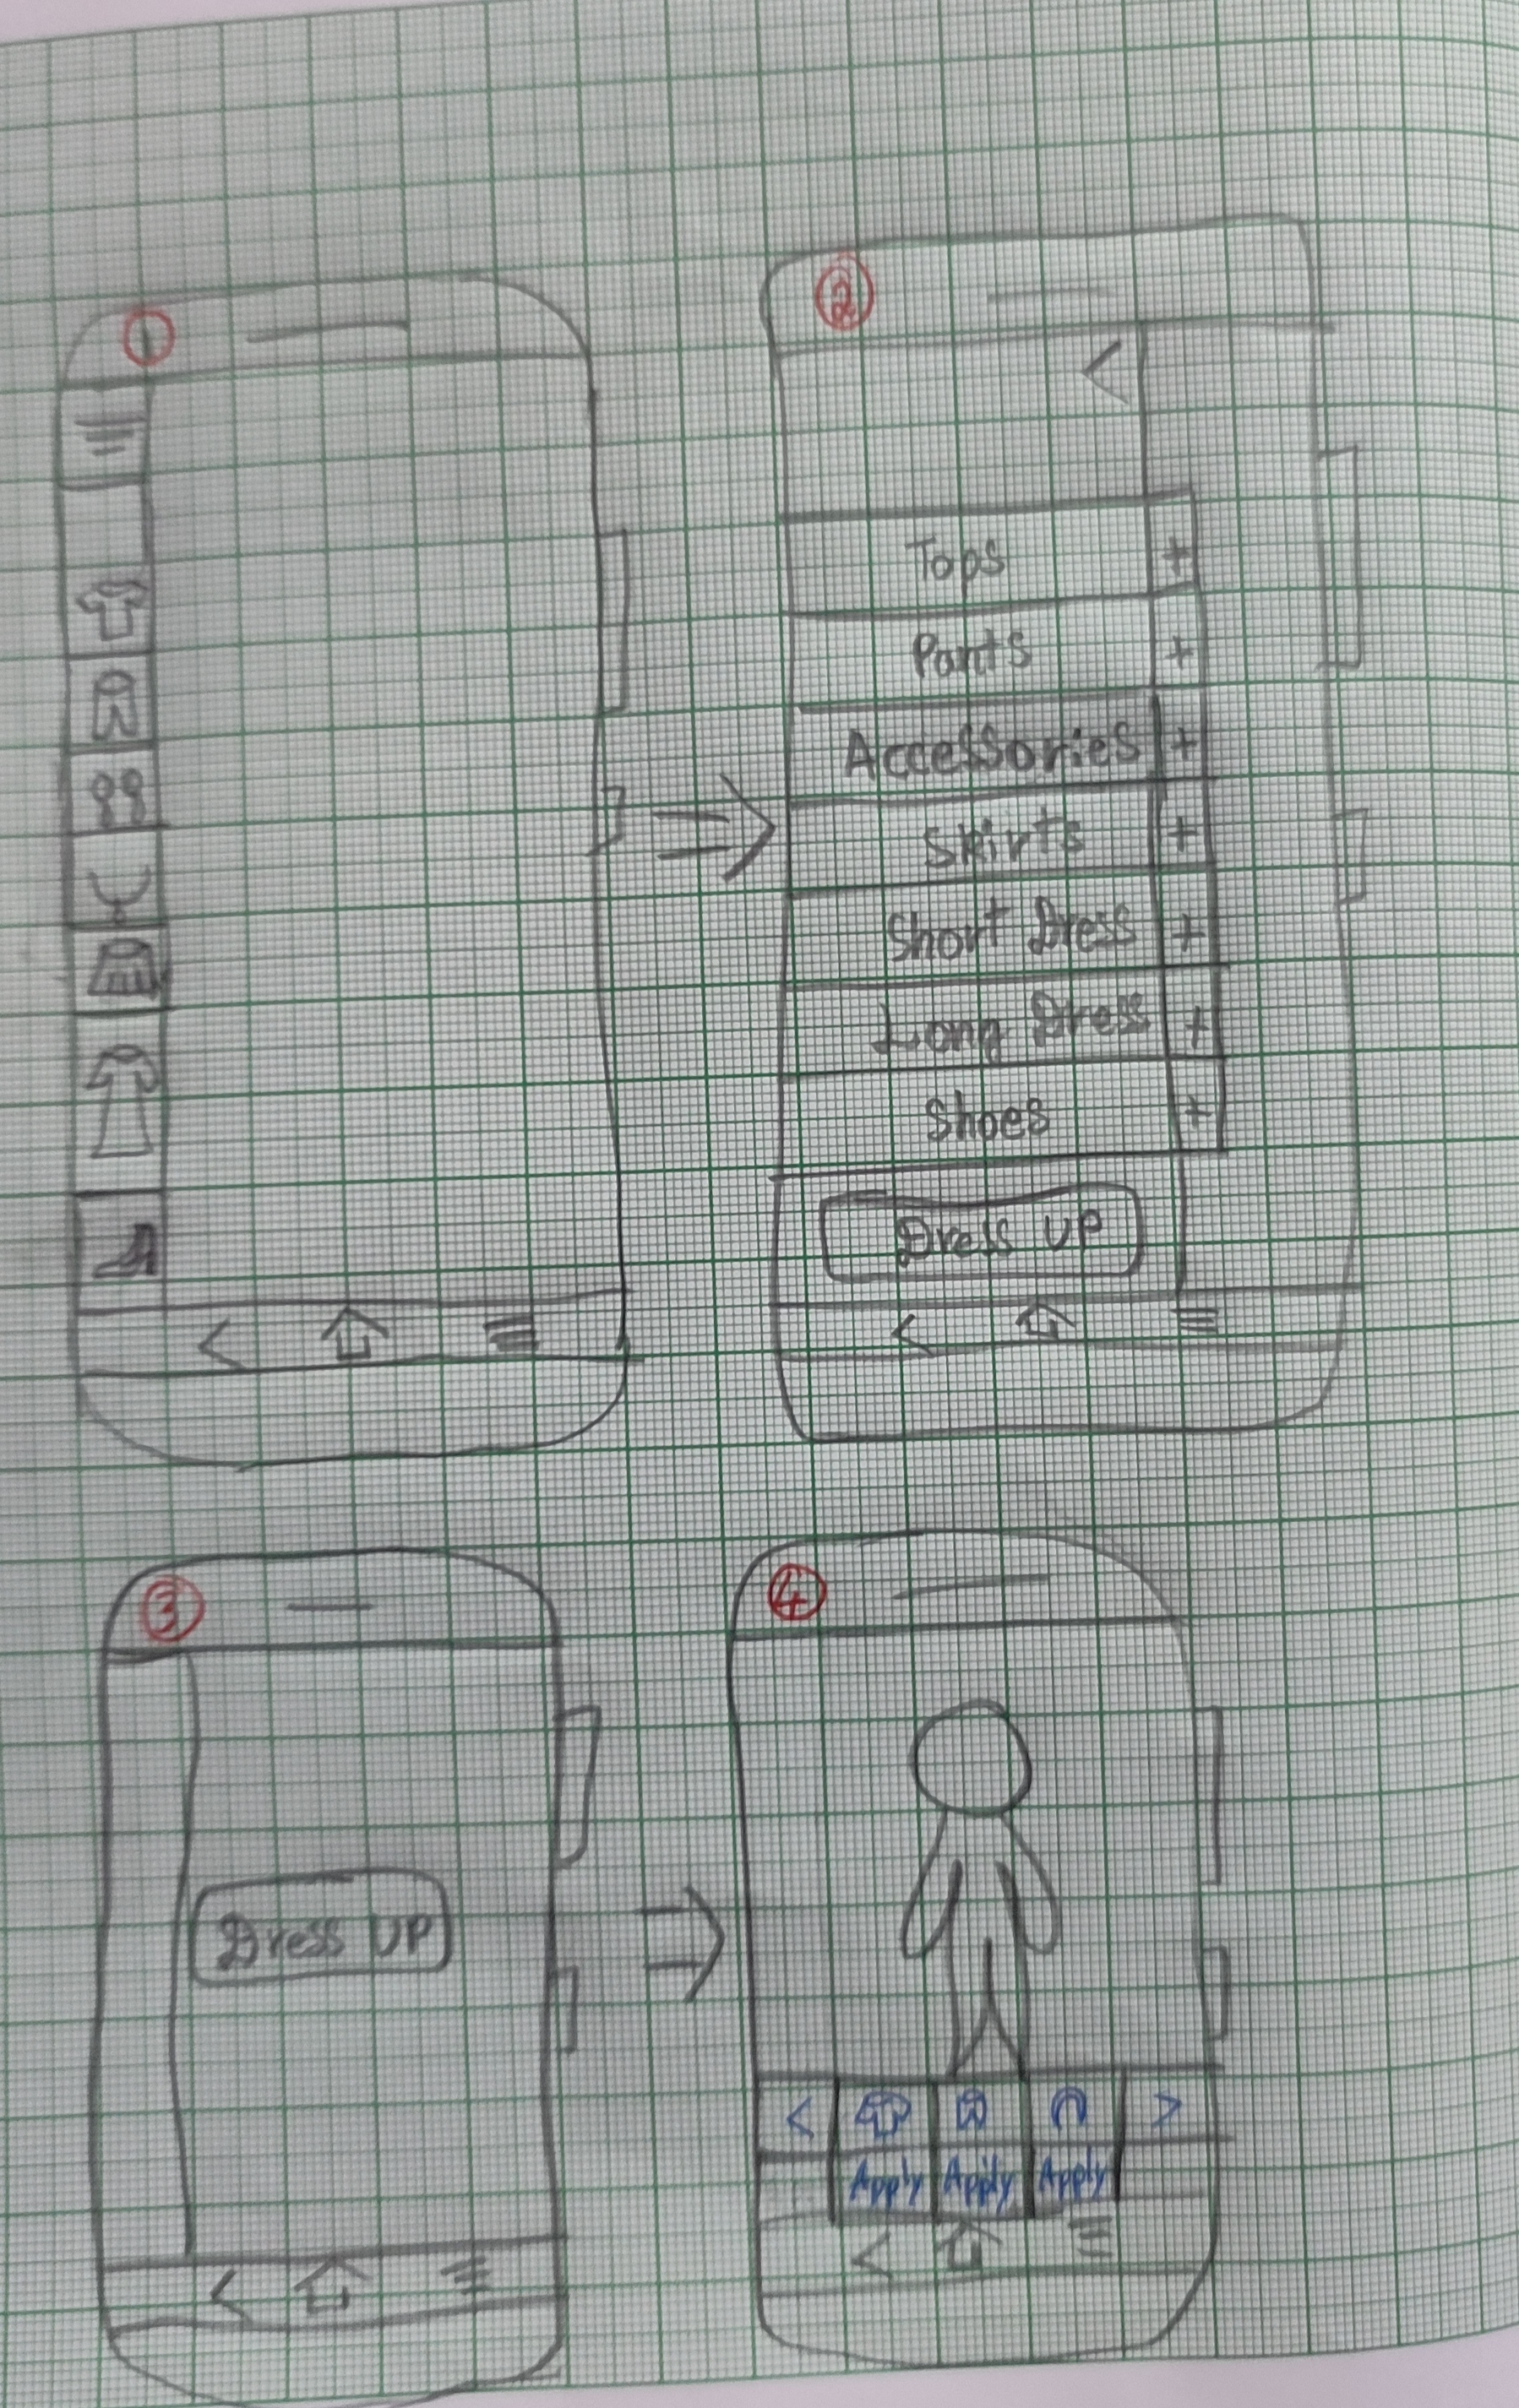 ①
②
Tops +
Pants +
Accessories +
Skirts +
Short Dress +
Long Dress +
Shoes +
Dress UP
③
Dress UP
④
< >
Apply Apply Apply